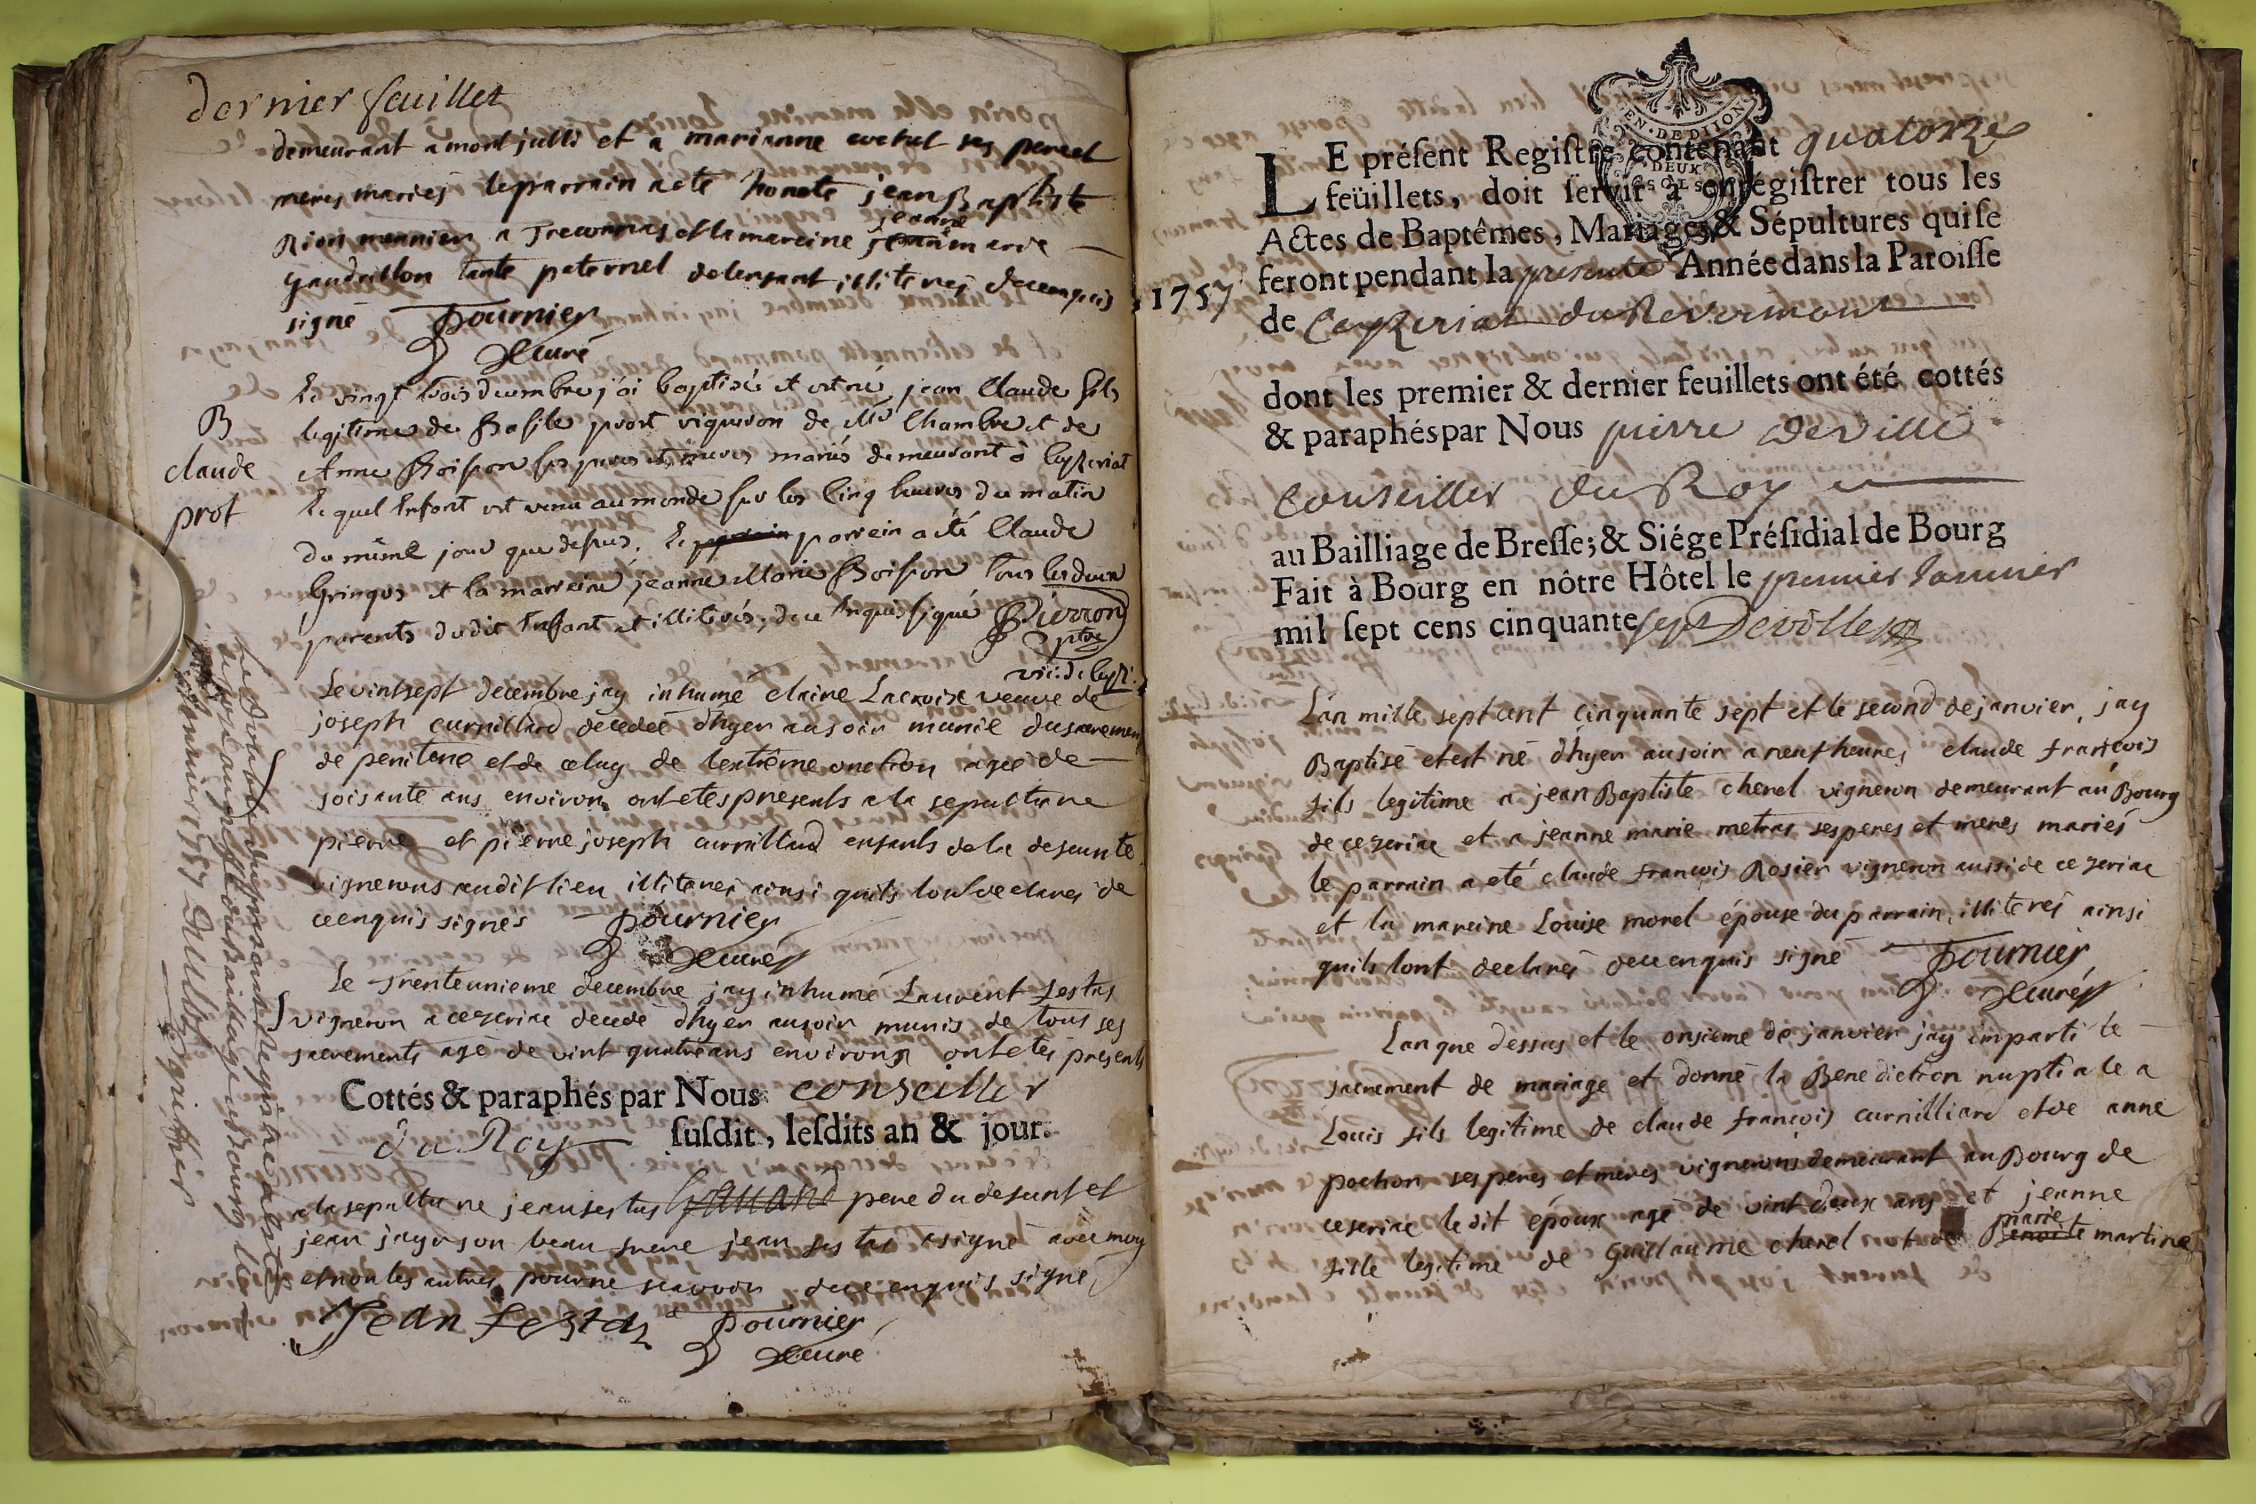 dernier feuillet
demeurant a montjulli et a marianne ses pereet
meres mariés leparrain aeté honete jean Baptiste
Rion meunier a et lamareine jeanne marie
gaudrillon tante paternel delenfant illiterés decenquis
signé Fournier
Curé
B
claude
prot
Le vingt trois decembre j'ai baptisé et est né jean Claude fils
legitime de Basile prost vigneron de Mr Chambre et de
Anne Boisson ses peres et meres mariés demeurant à Ceyzeriat
Lequel Enfant est venu au monde sur les Cinq heures du matin
du même jour que dessus. Le parrein a été Claude
Gringos et la marreine jeanne Marie Boisson tous les deux
parents dudit Enfant et illiterés, de ce Enquis signé Pierron
ptre
vic: de Ceyz:
Le vintsept decembre jay inhumé claire Lacroix veuve de
joseph curnillard decedeé d'hyer ausoir munie dusacremen
de penitene et de celuy de lextrême onction ageé de
soisante ans environ ontetes presents a la sepulture
pierre et pierre joseph curnilland enfants de la defunte
vignerons audit lieu illiterés ainsi quils lontdeclarés de
ceenquis signés Fournier
Curé
Le trenteunieme decembre jay inhumé Lauvent sestas
vigneron a cezeriac decedé d'hyer ausoir munis de tous ses
sacrements agé de vint quatreans environ ontetés presents
Cottés & paraphés par Nous conseiller
du Roy susdit, lesdits an & jour.
alasepulture jeansestas pere du defuntet
jean jayr son beau frere jean sestas asigné avec moy
etnon les autres pour ne scavoir de ce enquis signé
Jean Festaz Fournier
Curé
EN·DEDIJON
DEUX
SOLS
1757
LE préſent Regiſtre contenant quatorze
feüillets, doit ſervir à enrégiſtrer tous les
Actes de Baptêmes, Mariages & Sépultures qui ſe
feront pendant la presente Année dans la Paroiſſe
de Ceyzeriat du Revermont
dont les premier & dernier feuillets ont été cottés
& paraphés par Nous pierre Deville
Conseiller du Roy
au Bailliage de Breſſe; & Siége Préſidial de Bourg
Fait à Bourg en nôtre Hôtel le premier Janvier
mil ſept cens cinquante sept Deville
Lan mille septcent cinquante sept et le second dejanvier, jay
Baptisé etest né d'hyer ausoir a neuf heures claude françois
fils legitime a jean Baptiste cherel vigneron demeurant au Bourg
de cezeriac et a jeanne marie metras sesperes et meres mariés
le parrain a eté claude françois Rosier vigneron aussi de cezeriac
et la mareine Louise morel épouse du parrain, illiterés ainsi
quils lont declarés decenquis signé Fournier
Curé
Lan que dessus et le onsieme de janvier jay imparti le
sacrement de mariage et donné la Benediction nuptiale a
Louis fils legitime de claude françois curnilliard etde anne
pochon ses peres et meres vignerons demeurant au Bourg de
ceseriac ledit époux agé de vint deux ans et jeanne
fille legitime de Guillaume cherel et de marie martine